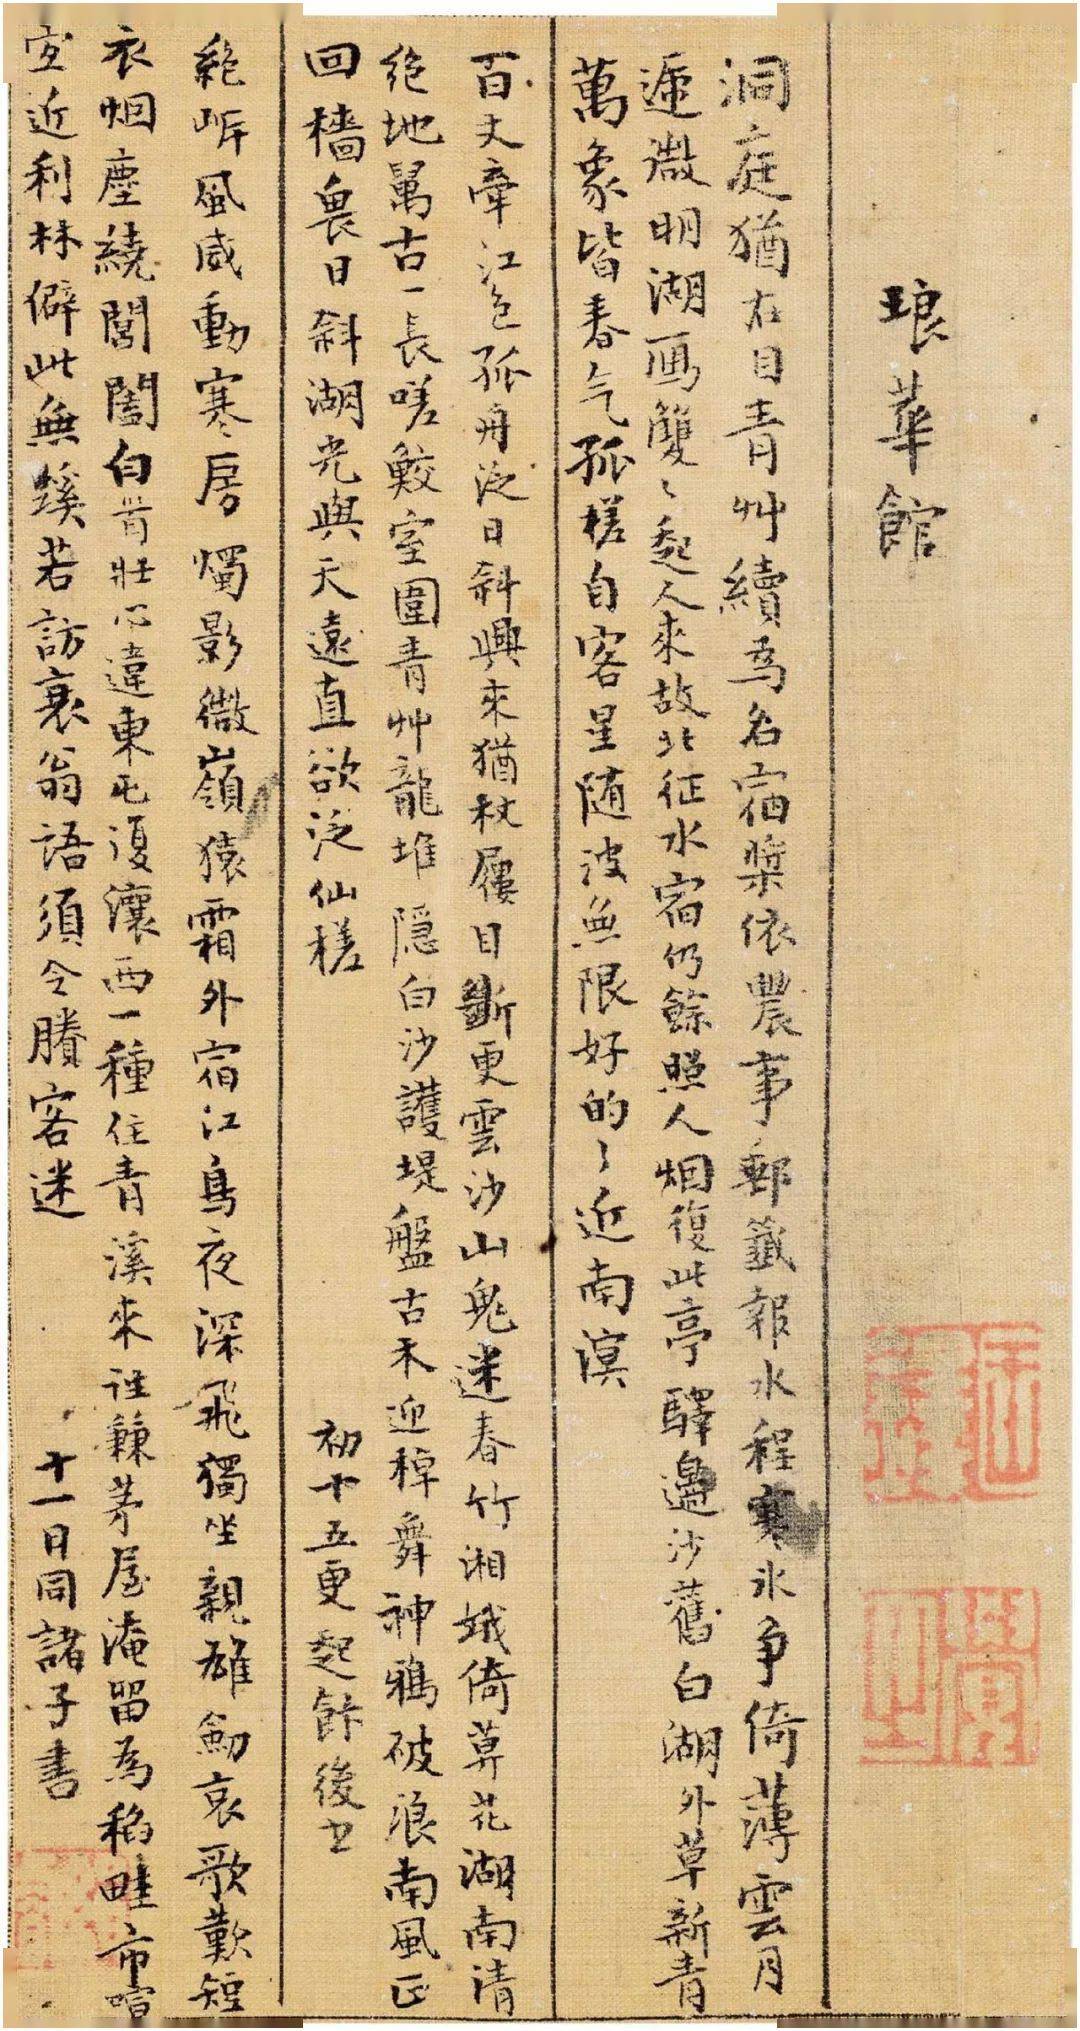 琅華館
洞庭猶在目青艸續為名宿槳依農事郵籤報水程寒冰爭倚薄雲月
遞微明湖雁雙〻起人來故北征水宿仍餘照人烟復此亭驛邊沙舊白湖外草新青
萬象皆春气孤槎自客星随波無限好的〻近南溟
百丈牽江色孤舟泛日斜興來猶杖屨目斷更雲沙山鬼迷春竹湘娥倚莫花湖南清
绝地萬古一長嗟鮫室圍青艸龍堆隱白沙護堤盤古木迎棹舞神鴉破浪南風正
回檣畏日斜湖光與天遠直欲泛仙槎
初十五更起餘後书
絕岸風威動寒房燭影微嶺猿霜外宿江鳥夜深飛獨坐親雄劍哀歌歎短
衣烟塵繞閶闔白首壯心違東屯復瀼西一種住青溪來往兼茅屋淹留為稻畦市喧
宜近利林僻此無蹊若訪衰翁語須令賸客迷
十一日同諸子書